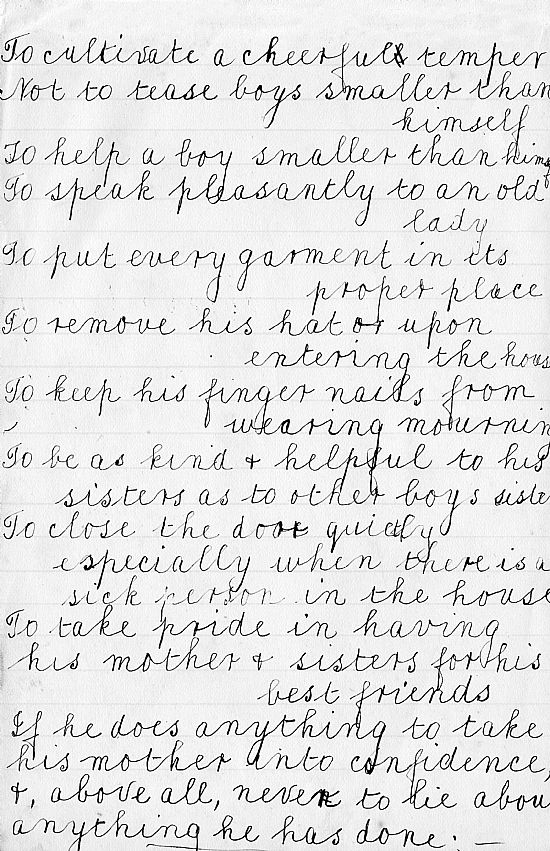 To cultivate a cheerful temper
Not to tease boys smaller than
himself
To help a boy smaller than hims
To speak pleasantly to an old
lady
To put every garment in its
proper place
To remove his hat upon
entering the hous
To keep his finger nails from
wearing mournin
To be as kind & helpful to his
sisters as to other boys siste
To close the door quietly
especially when there is a
sick person in the house
To take pride in having
his mother & sisters for his
best friends
If he does anything to take
his mother into confidence,
&, above all, never to lie abou
anything he has done. —